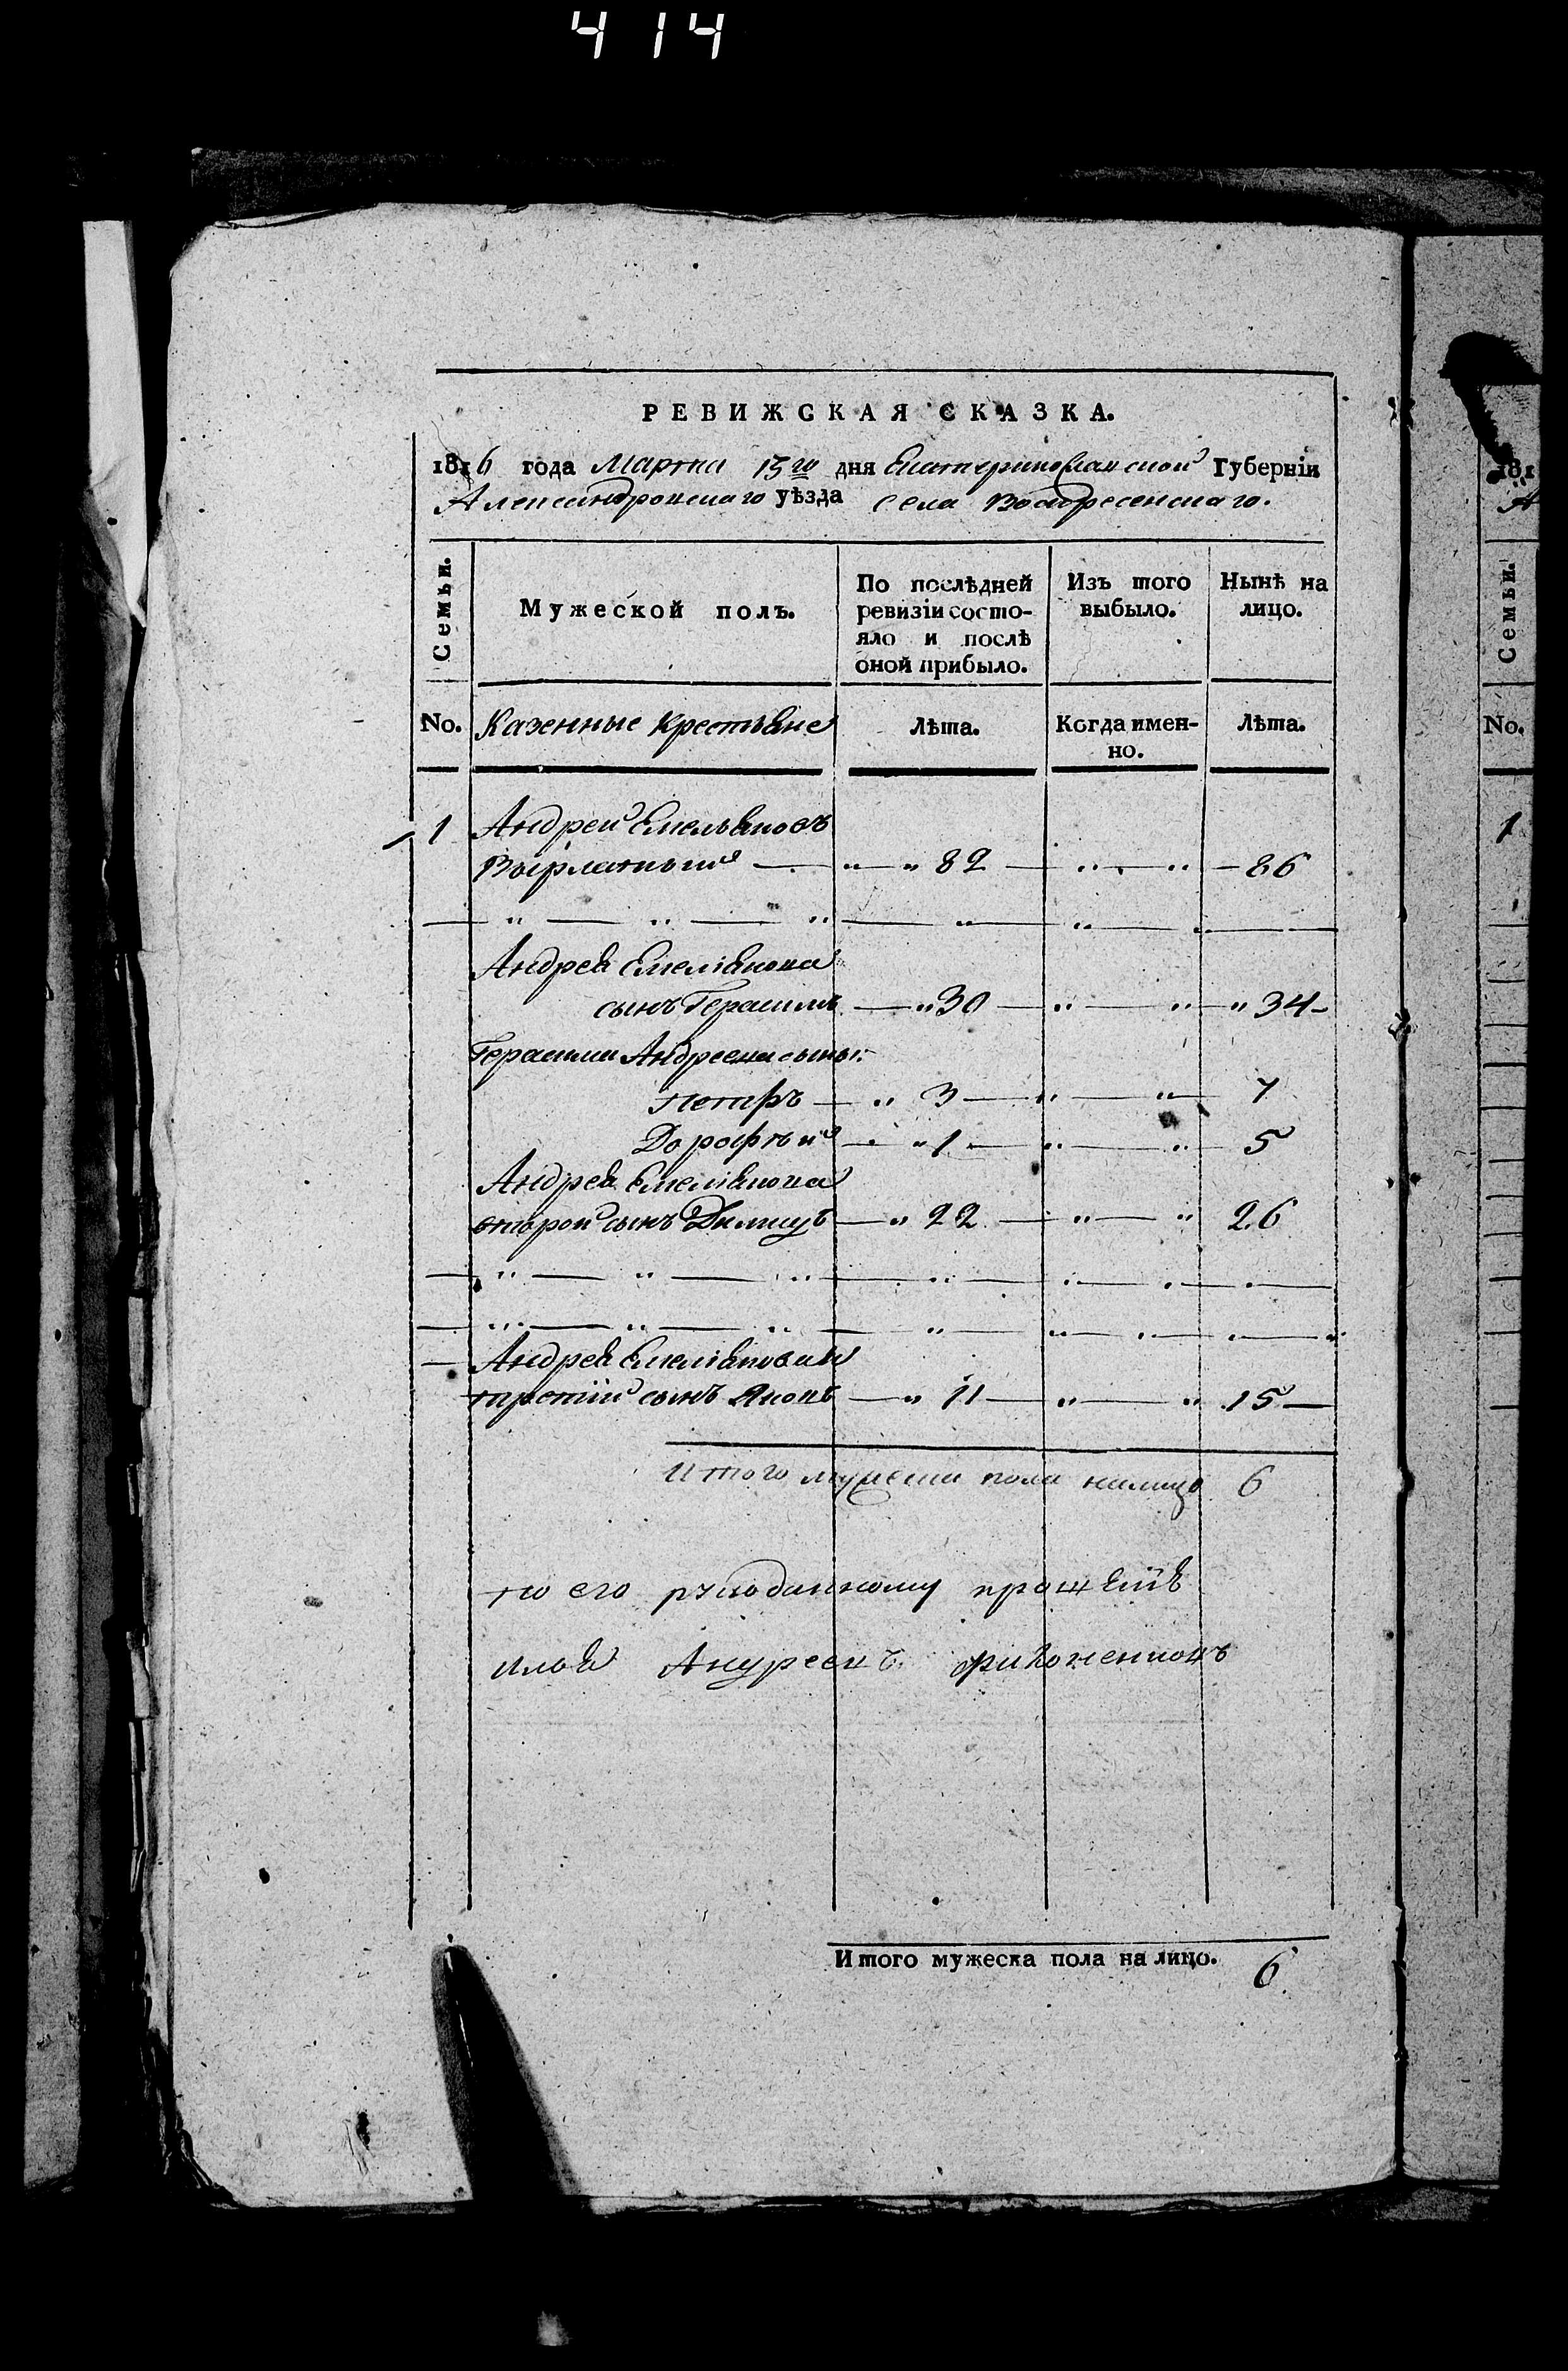 414
РЕВИЖСКАЯ СКАЗКА.
1816 года Марта 15го дня Екатеринославской Губерніи
Александровскаго уѣзда села Воскресенскаго.
Семьи.
Мужеской полъ.
По послѣдней ревизіи состо-
яло и послѣ
оной прибыло.
Изъ того
выбыло.
Нынѣ на
лицо.
No. Казенные крестьяне Лѣта. Когда имен-
но. Лѣта.
1 Андрей Емельяновъ
— „ — „ 82 — „ — „ — 86
— „ — „ — „ — „ — „ — „ —
Андрея Емеліянова
сынъ Герасимъ — „ 30 — „ — „ — „ 34 —
Герасима Андреева сыны:
Петръ — „ 3 — „ — „ — 7
Дорофѣй — „ 1 — „ — „ — 5
Андрея Емеліянова
второй сынъ — „ 22 — „ — „ 26
— „ — „ — „ — „ — „ — „ —
— „ — „ — „ — „ — „ — „ —
Андрея Емеліянова
третій сынъ Яковъ — „ 11 — „ — „ 15 —
Итого мужеска пола налицо 6
по его рукоданному
Андреевъ
Итого мужеска пола на лицо. 6
181
А
Семьи.
No.
1